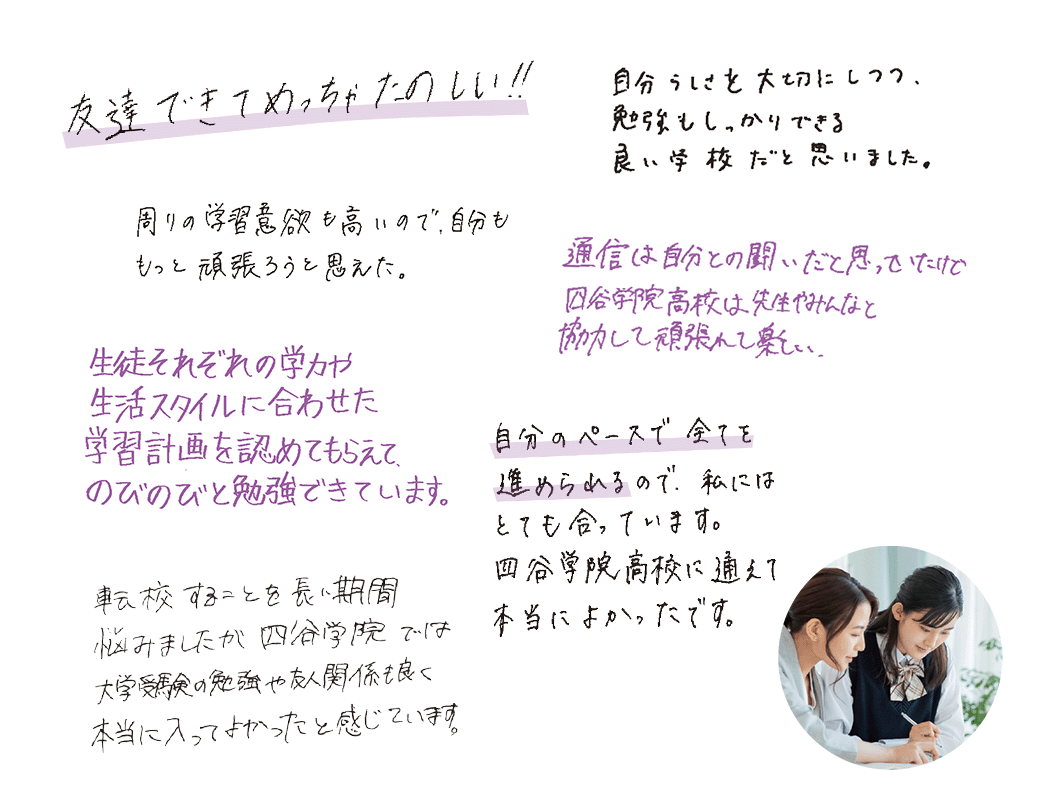 友達できてめっちゃたのしい!!
自分らしさを大切にしつつ、
勉強もしっかりできる
良い学校だと思いました。
周りの学習意欲も高いので、自分も
もっと頑張ろうと思えた。
通信は自分との闘いだと思っていたけど
四谷学院高校は先生やみんなと
協力して頑張れて楽しい、
生徒それぞれの学力や
生活スタイルに合わせた
学習計画を認めてもらえて、
のびのびと勉強できています。
自分のペースで全てを
進められるので、私には
とても合っています。
四谷学院高校に通えて
本当によかったです。
転校することを長い期間
悩みましたが四谷学院では
大学受験の勉強や友人関係も良く
本当に入ってよかったと感じています。